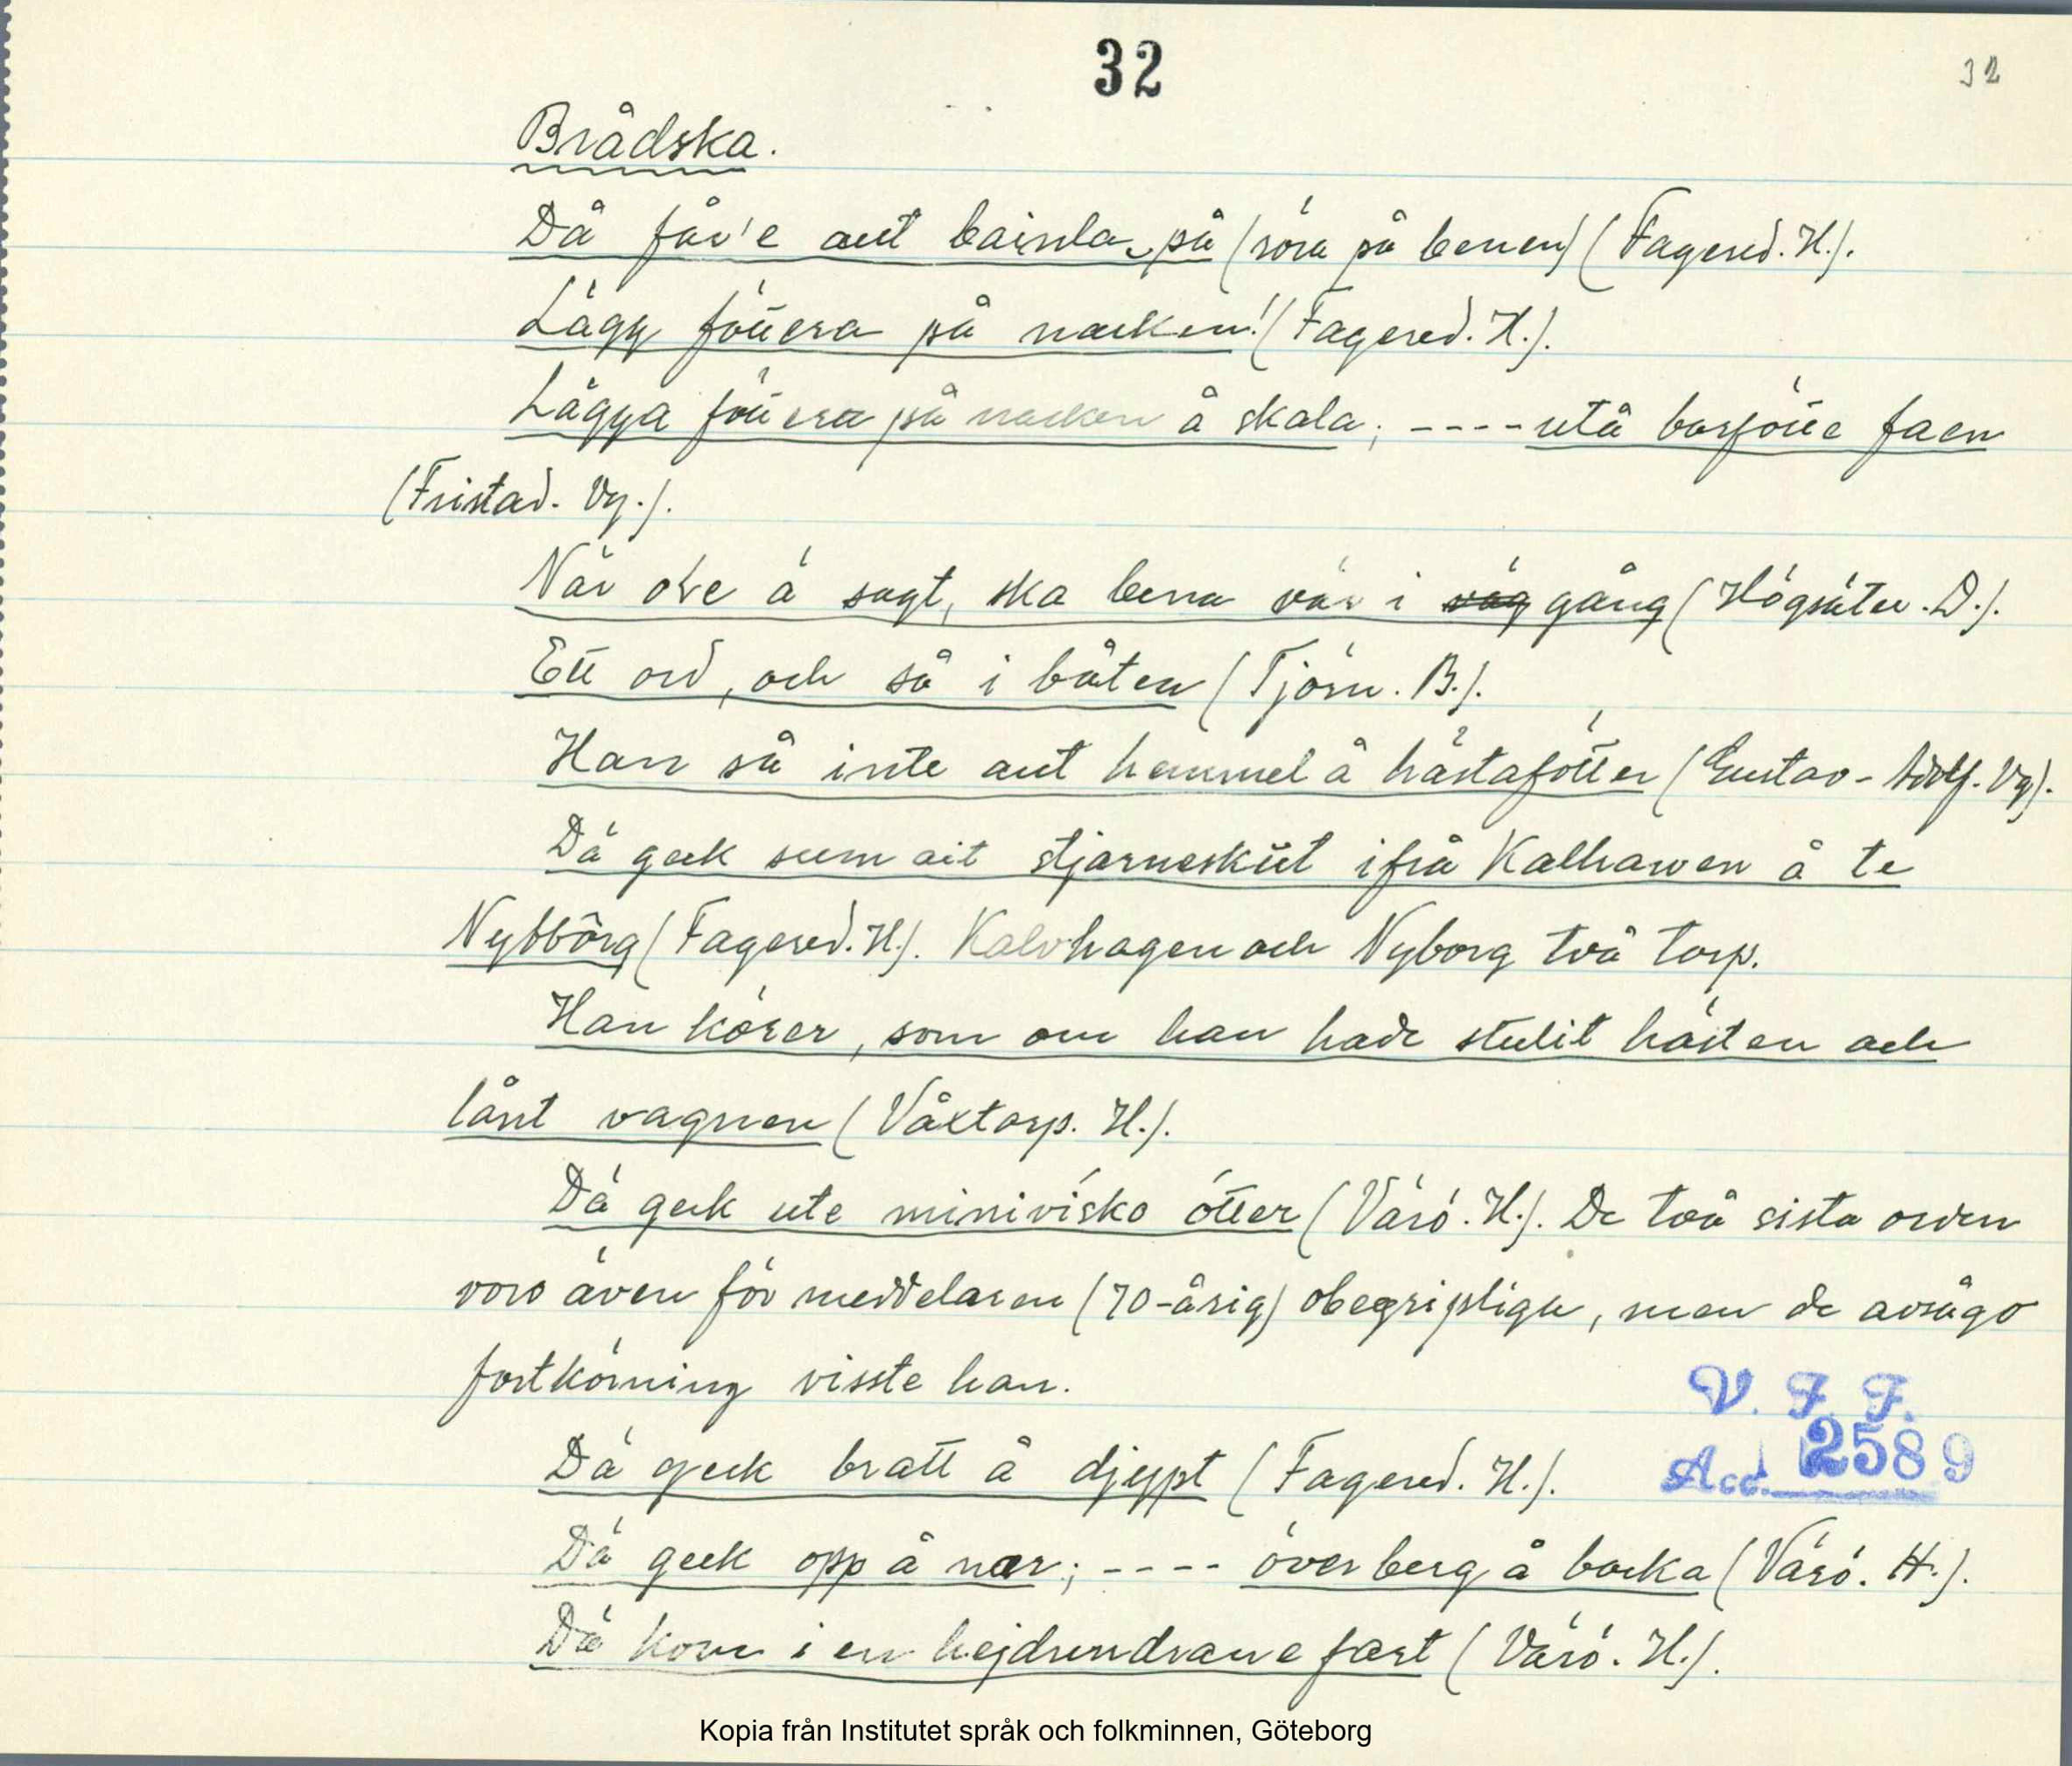 32
32
Brådska.
Då får'e aut bainla på (röra på benen) (Fagered. H.).
Lägg föttera på nacken! (Fagered. H.).
Lägga föttera på nacken å skala; ---- utå barfötte faen
(Fristad. Vg.).
När ole ä sagt, ska bena vär i väg gång (Högsäter. D.).
Ett ord, och så i båten (Tjörn. B.).
Han så inte aut hemmel å hästafötter (Gustav-Adolf. Vg).
Dä geck sum ait stjarneskút ifrå Kalhawen å te
Nybbôrg (Fagered. H.). Kalvhagen och Nyborg två torp.
Han körer, som om han hade stulit hästen och
lånt vagnen (Våxtorp. H.).
Dä geck ute minivisko ötter (Värö. H.). De två sista orden
voro även för meddelaren (70-årig) obegripliga, men de avsågo
fortkörning visste han.
Dä geck bratt å djypt (Fagered. H.).
V. F. F.
Acc. 2589
Dä geck opp å nær; ---- över berg å backa (Värö. H.).
Dä kom i en hejdundrane fart (Värö. H.).
Kopia från Institutet språk och folkminnen, Göteborg